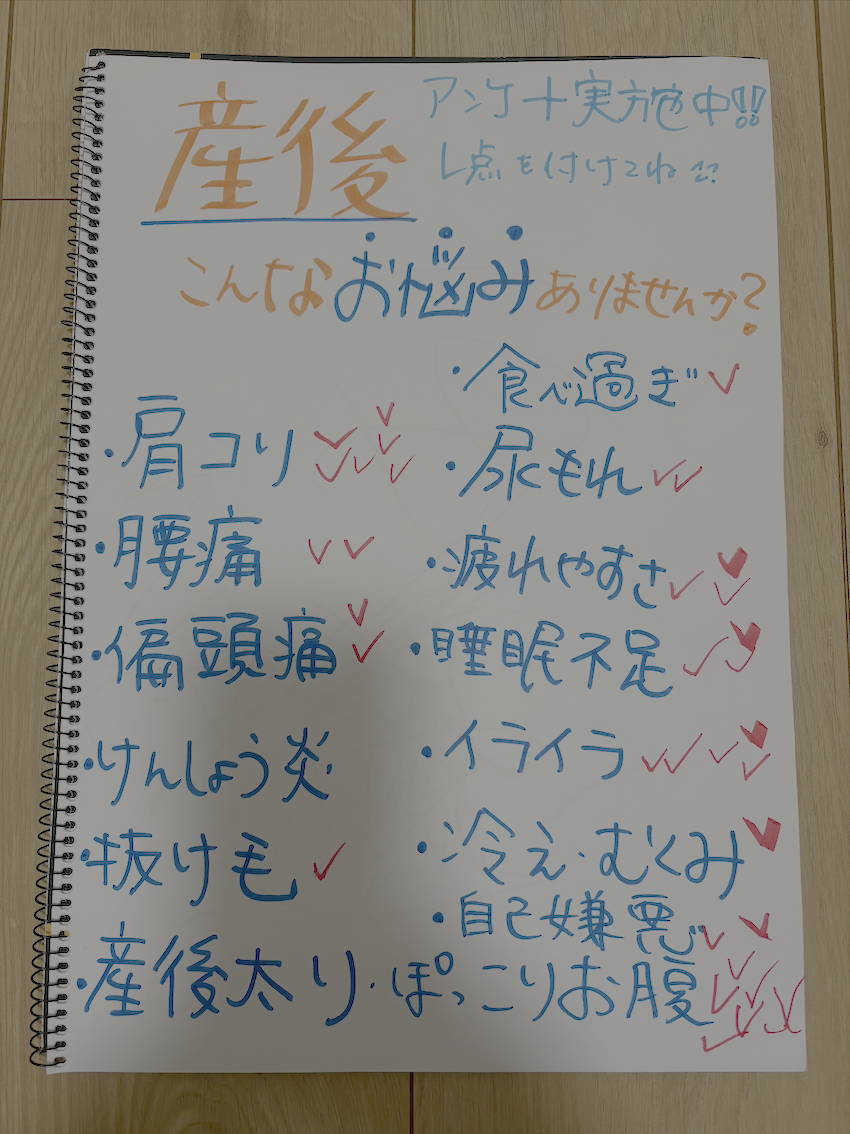 産後
アンケート実施中!!
レ点を付けてね
こんなお悩みありませんか?
・肩コリ
・腰痛
・偏頭痛
・けんしょう炎
・抜け毛
・産後太り・ぽっこりお腹
・食べ過ぎ
・尿もれ
・疲れやすさ
・睡眠不足
・イライラ
・冷え・むくみ
・自己嫌悪